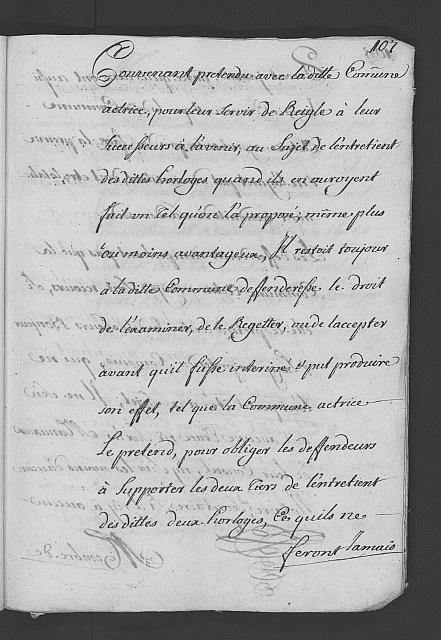 107
Convenant pretendu avec la ditte Com̃une
actrice, pour leur servir de Reigle à leur
successeurs à l'avenir, au sujet de l'entretient
des dittes horloges quand ils en auroyent
fait un tel qu'on l'a proposé; même plus
ou moins avantageux, Il restoit toujour
à la ditte Commune deffenderesse le droit
de l'examiner, de le Regetter, ou de l'accepter
avant qu'il fusse interine et put produire
son effet, tel que la Commune actrice
Le pretend, pour obliger les deffendeurs
à Supporter les deux tiers de l'entretient
des dittes deux horloges, Ce qu'ils ne
feront Jamais